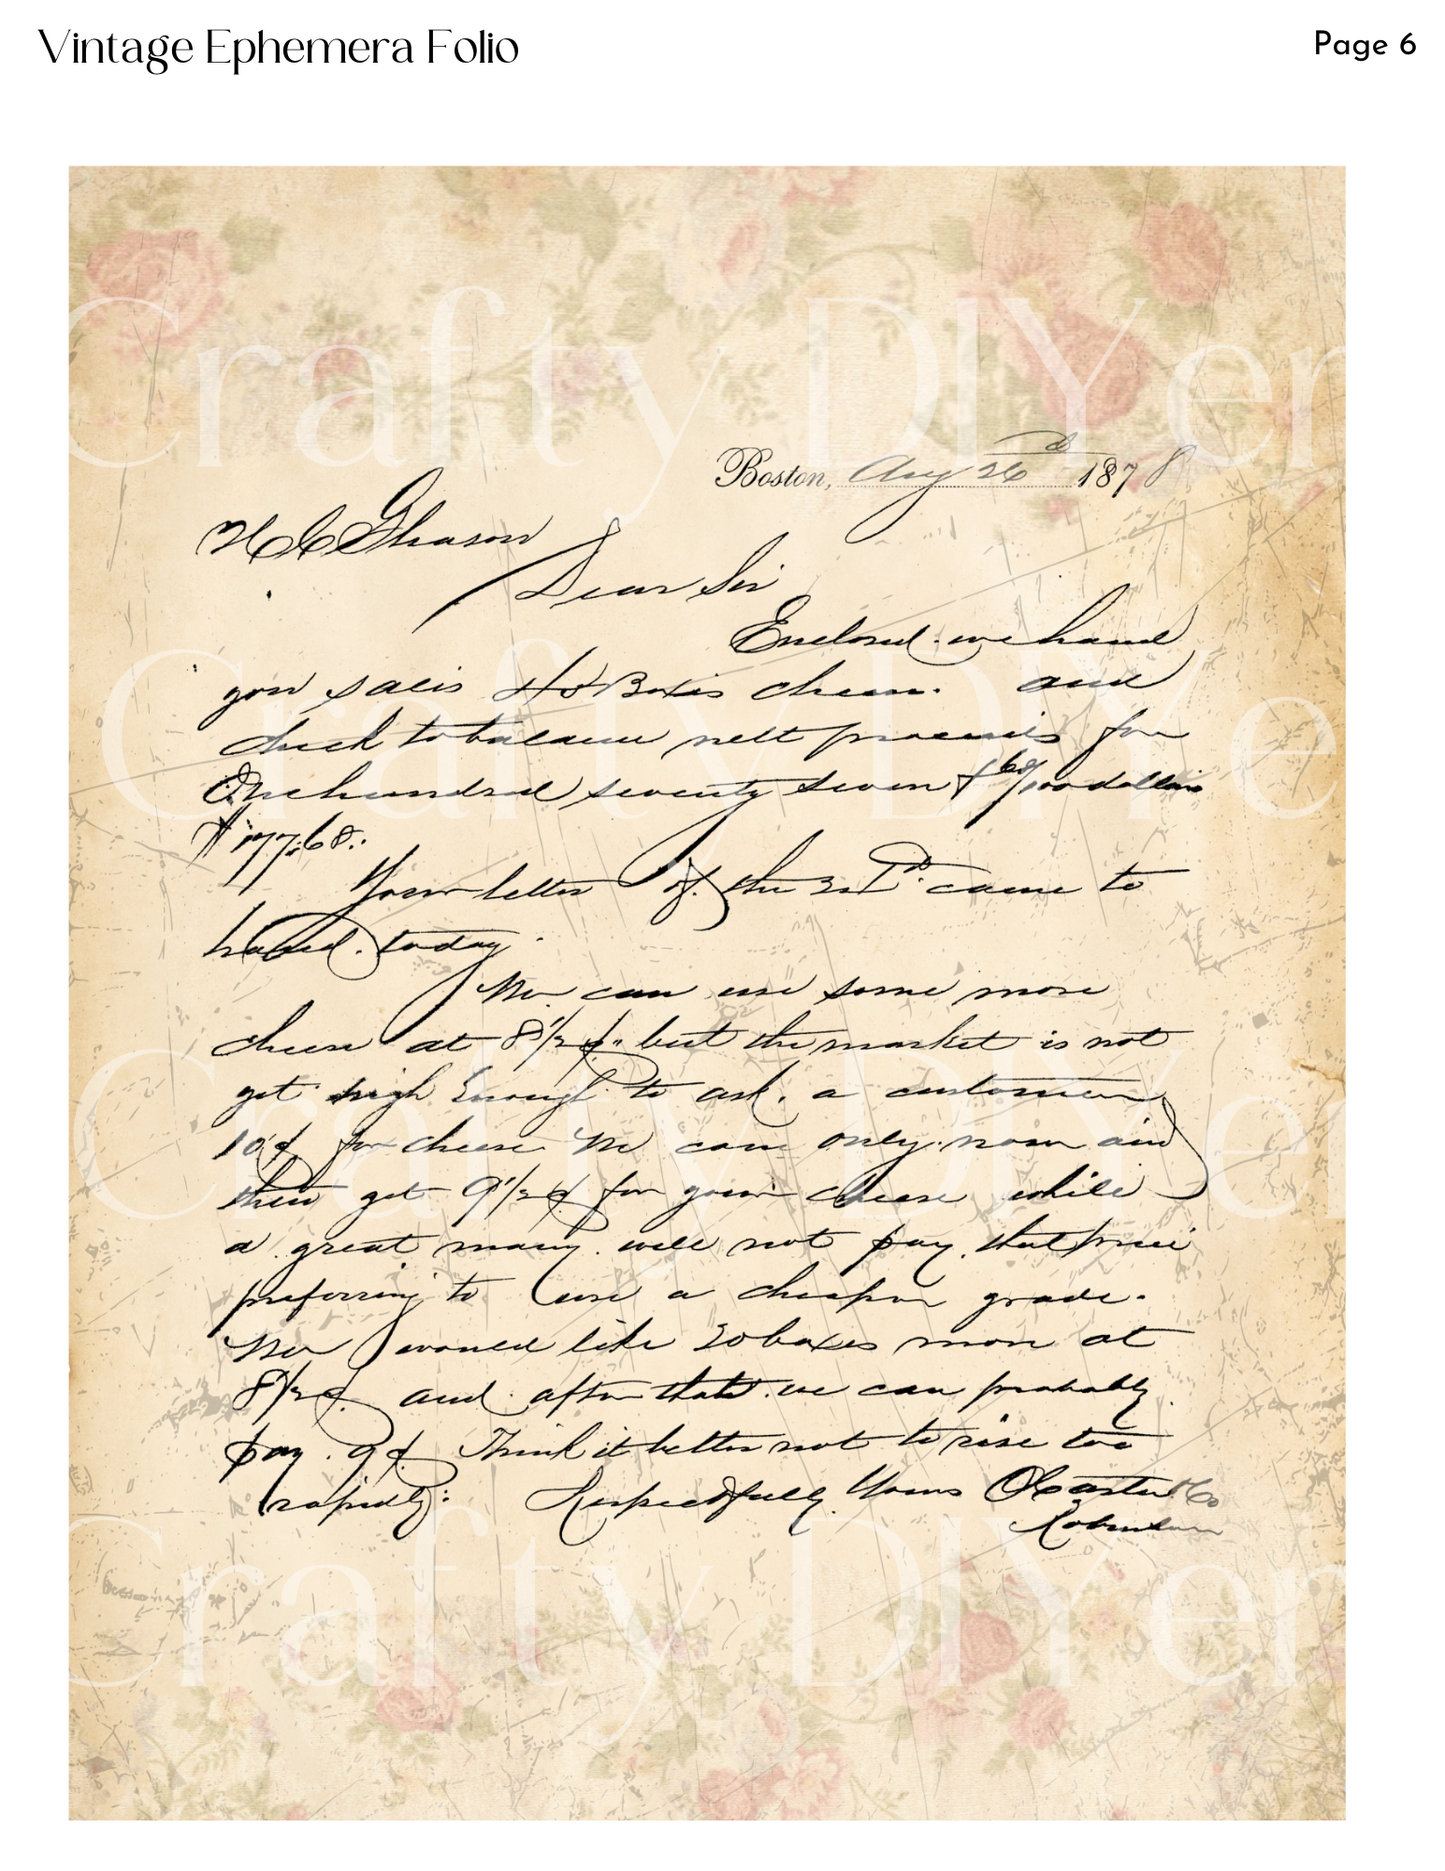 Vintage Ephemera Folio
Page 6
Boston, Aug 26 1878
Gleason
Dear Sir
Enclosed we hand
you sales Boxes cheese. and
check to balance nett proceeds for
One hundred seventy seven & 68/100 dollars
$177.68.
Your letter of the came to
hand today
We can use some more
cheese at 8 1/2 ¢ but the market is not
yet high enough to ask a customer
10¢ for cheese We can only now and
then get 9 1/2 ¢ for your cheese while
a great many will not pay that price
preferring to use a cheaper grade.
We would like 20 boxes more at
8 1/2 ¢ and after that we can probably
pay 9¢ Think it better not to rise too
rapidly. Respectfully Yours
Crafty DIYer
Crafty DIYe
Crafty DIYer
Crafty DIYer